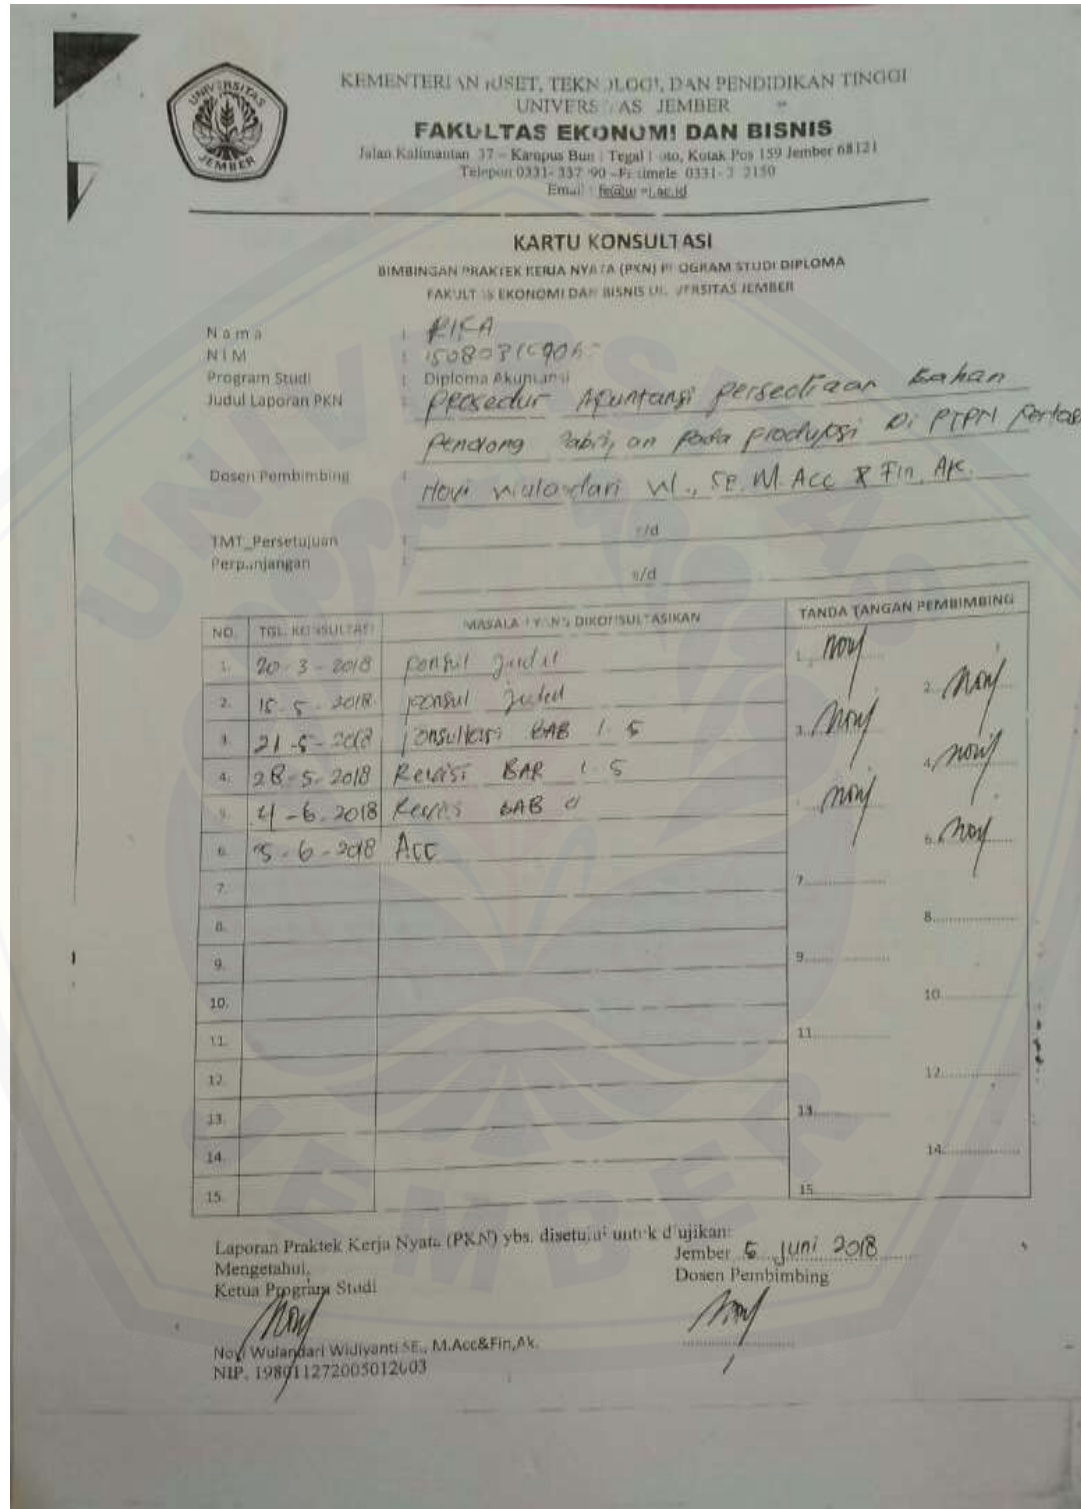 UNIVERSITAS
JEMBER
KEMENTERIAN RISET, TEKNOLOGI, DAN PENDIDIKAN TINGGI
UNIVERSITAS JEMBER
FAKULTAS EKONOMI DAN BISNIS
Jalan Kalimantan 37 – Kampus Bumi Tegal Boto, Kotak Pos 159 Jember 68121
Telepon 0331- 337 90 – Faximele 0331-
Email :
KARTU KONSULTASI
BIMBINGAN PRAKTEK KERJA NYATA (PKN) PROGRAM STUDI DIPLOMA
FAKULTAS EKONOMI DAN BISNIS UNIVERSITAS JEMBER
Nama :
NIM :
Program Studi : Diploma Akuntansi
Judul Laporan PKN : Prosedur Akuntansi Persediaan Bahan
Penolong pada produksi Di PTPN
Dosen Pembimbing : Novi Wulandari W., SE. M. Acc & Fin, Ak.
TMT_Persetujuan : s/d
Perpanjangan : s/d
NO. TGL. KONSULTASI MASALAH YANG DIKONSULTASIKAN TANDA TANGAN PEMBIMBING
1. 20-3-2018 konsul judul 1.
2. 15-5-2018 konsul judul 2.
3. 21-5-2018 konsultasi BAB 1-5 3.
4. 28-5-2018 Revisi BAB 1-5 4.
5. 4-6-2018 Revisi BAB
6. 5-6-2018 Acc 6.
7. 7.
8. 8.
9. 9.
10. 10.
11. 11.
12. 12.
13. 13.
14. 14.
15. 15.
Laporan Praktek Kerja Nyata (PKN) ybs. disetujui untuk diujikan:
Jember 5 Juni 2018
Mengetahui,
Dosen Pembimbing
Ketua Program Studi
Novi Wulandari Widiyanti SE., M.Acc&Fin,Ak.
NIP. 198011272005012003